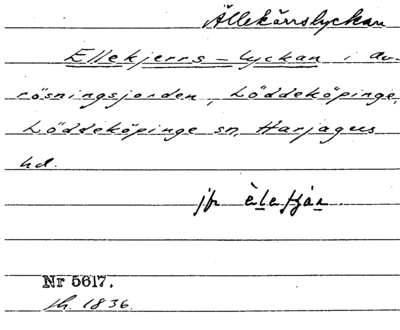 Ällekärrslyckan
Ellekjerrs-lyckan i av-
rösningsjorden, Löddeköpinge,
Löddeköpinge sn, Harjagers
hd.
jfr
Nr 5617.
1836.